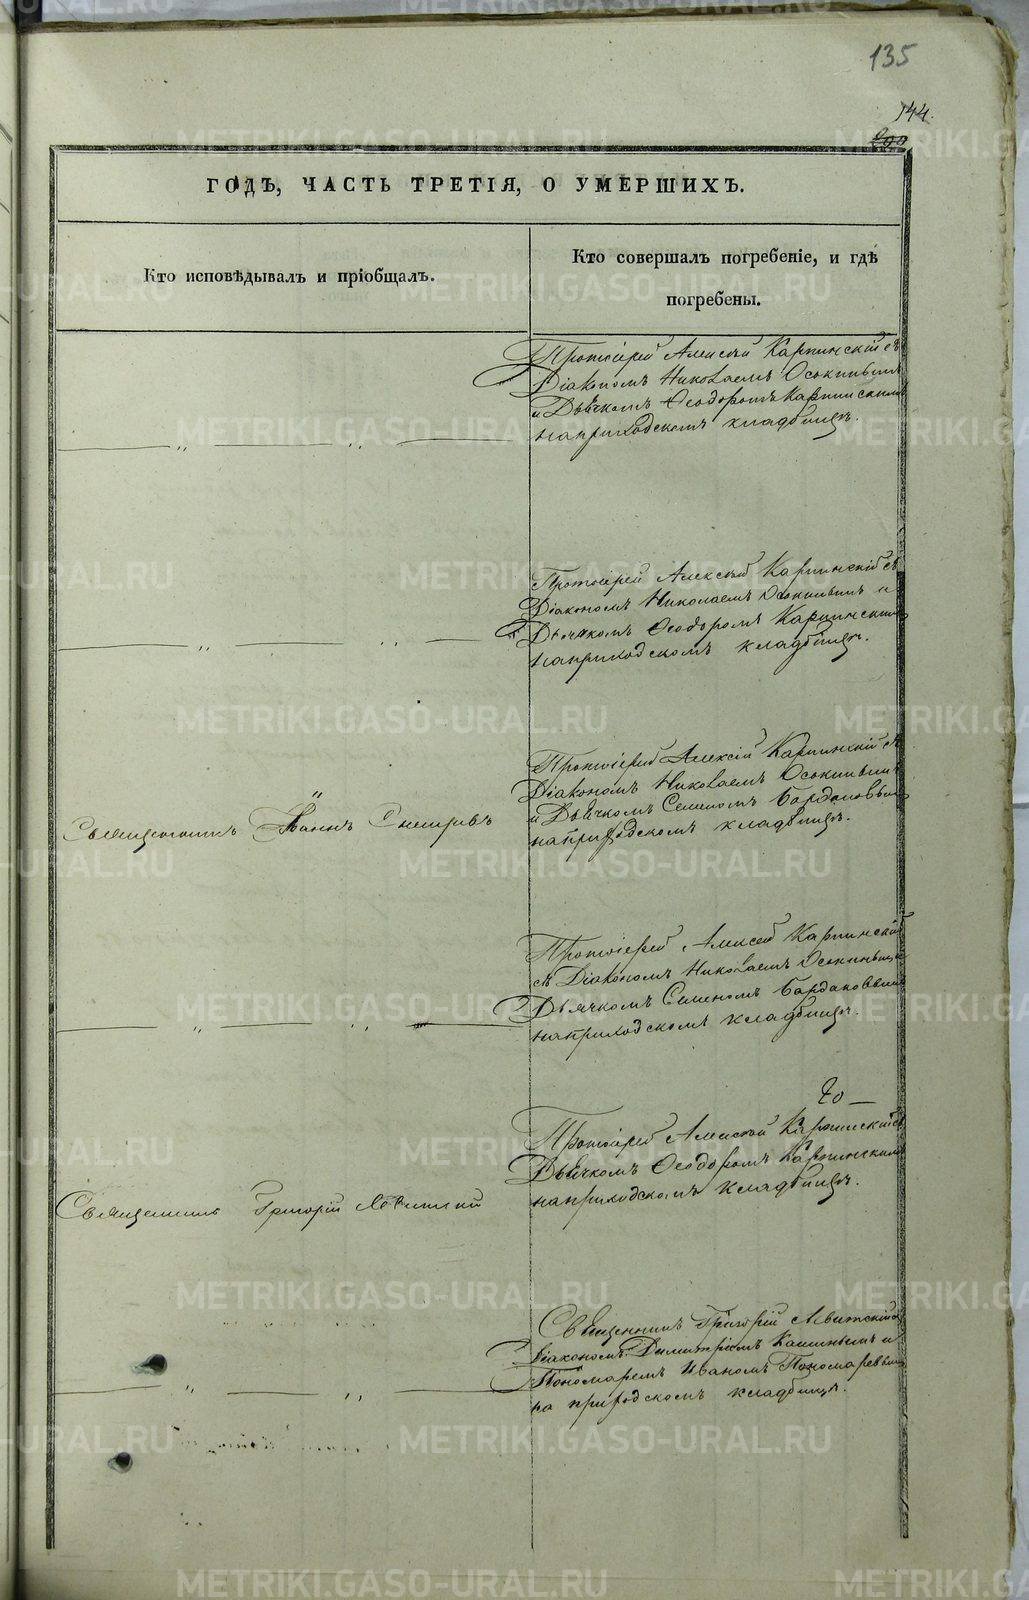 135
144.
200
ГОДЪ, ЧАСТЬ ТРЕТІЯ, О УМЕРШИХЪ.
Кто исповѣдывалъ и пріобщалъ.
Кто совершалъ погребеніе, и гдѣ
погребены.
Протоіерей Алексѣй Карпинскій съ
Діакономъ Николаемъ Осокинымъ
и Дьячкомъ Ѳеодоромъ Карпинскимъ
на приходскомъ кладбищѣ.
Протоіерей Алексѣй Карпинскій съ
Діакономъ Николаемъ Осокинымъ и
Дьячкомъ Ѳеодоромъ Карпинскимъ
на приходскомъ кладбищѣ.
Протоіерей Алексій Карпинскій съ
Діакономъ Николаемъ Осокинымъ
и Дьячкомъ Семеномъ Бардаковымъ
на приходскомъ кладбищѣ.
Священникъ Іоаннъ
Протоіерей Алексей Карпинскій
съ Діакономъ Николаемъ Осокинымъ и
Дьячкомъ Семеномъ Бардаковымъ
на приходскомъ кладбищѣ.
Протоіерей Алексѣй Карпинскій съ
Дьячкомъ Ѳеодоромъ Карпинскимъ
на приходскомъ кладбищѣ.
Священникъ Григорій Левитскій
Священникъ Григорій Левитскій съ
Діакономъ Димитріемъ Кашинымъ и
Пономаремъ Иваномъ Пономаревымъ
на приходскомъ кладбищѣ.
METRIKI.GASO-URAL.RU